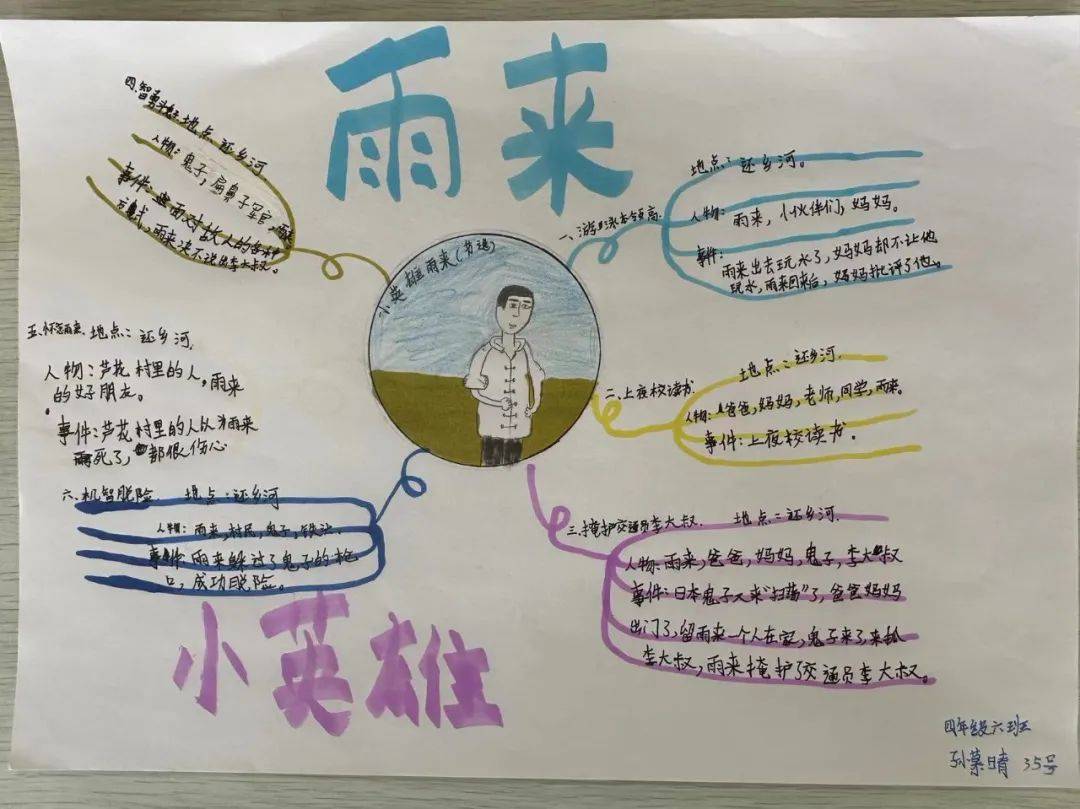 雨来
小英雄雨来(节选)
一、游泳本领高.
地点:还乡河。
人物:雨来,小伙伴们,妈妈。
事件:
雨来出去玩水了,妈妈却不让他
玩水,雨来回来后,妈妈批评了他。
二、上夜校读书.
地点:还乡河.
人物:爸爸,妈妈,老师,同学,雨来。
事件:上夜校读书.
三、掩护交通员李大叔. 地点:还乡河.
人物:雨来,爸爸,妈妈,鬼子,李大叔
事件:日本鬼子又来“扫荡”了,爸爸妈妈
出门了,留雨来一个人在家,鬼子来了,来抓
李大叔,雨来掩护了交通员李大叔。
四、智勇斗鬼子 地点:还乡河
人物:鬼子,扁鼻子军官,
事件:面对敌人的各种
方式,雨来决不说出李大叔。
五、怀念雨来. 地点:还乡河.
人物:芦花村里的人,雨来
的好朋友。
事件:芦花村里的人以为雨来
死了,都很伤心
六、机智脱险. 地点:还乡河
人物:雨来,村民,鬼子,
事件:雨来躲过了鬼子的枪
口,成功脱险。
小英雄
四年级六班
孙菓晴 35号